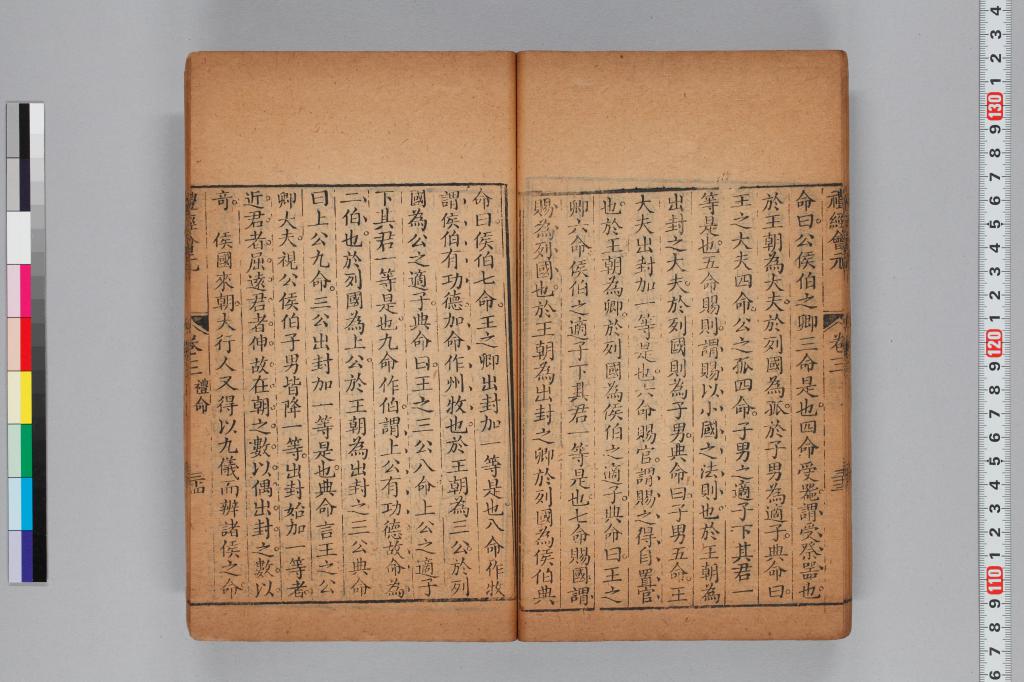 禮經會元
卷三
命曰公侯伯之卿三命是也四命受器謂受祭器也
於王朝為大夫於列國為孤於子男為適子典命曰
王之大夫四命公之孤四命子男之適子下其君一
等是也五命賜則謂賜以小國之法則也於王朝為
出封之大夫於列國則為子男典命曰子男五命王
大夫出封加一等是也六命賜官謂賜之得自置官
也於王朝為卿於列國為侯伯之適子典命曰王之
卿六命侯伯之適子下其君一等是也七命賜國謂
賜為列國也於王朝為出封之卿於列國為侯伯典
命曰侯伯七命王之卿出封加一等是也八命作牧
謂侯伯有功德加命作州牧也於王朝為三公於列
國為公之適子典命曰王之三公八命上公之適子
下其君一等是也九命作伯謂上公有功德故命為
二伯也於列國為上公於王朝為出封之三公典命
曰上公九命三公出封加一等是也典命言王之公
卿大夫視公侯伯子男皆降一等出封始加一等者
近君者屈遠君者伸故在朝之數以偶出封之數以
奇 侯國來朝大行人又得以九儀而辨諸侯之命
卷三 禮命